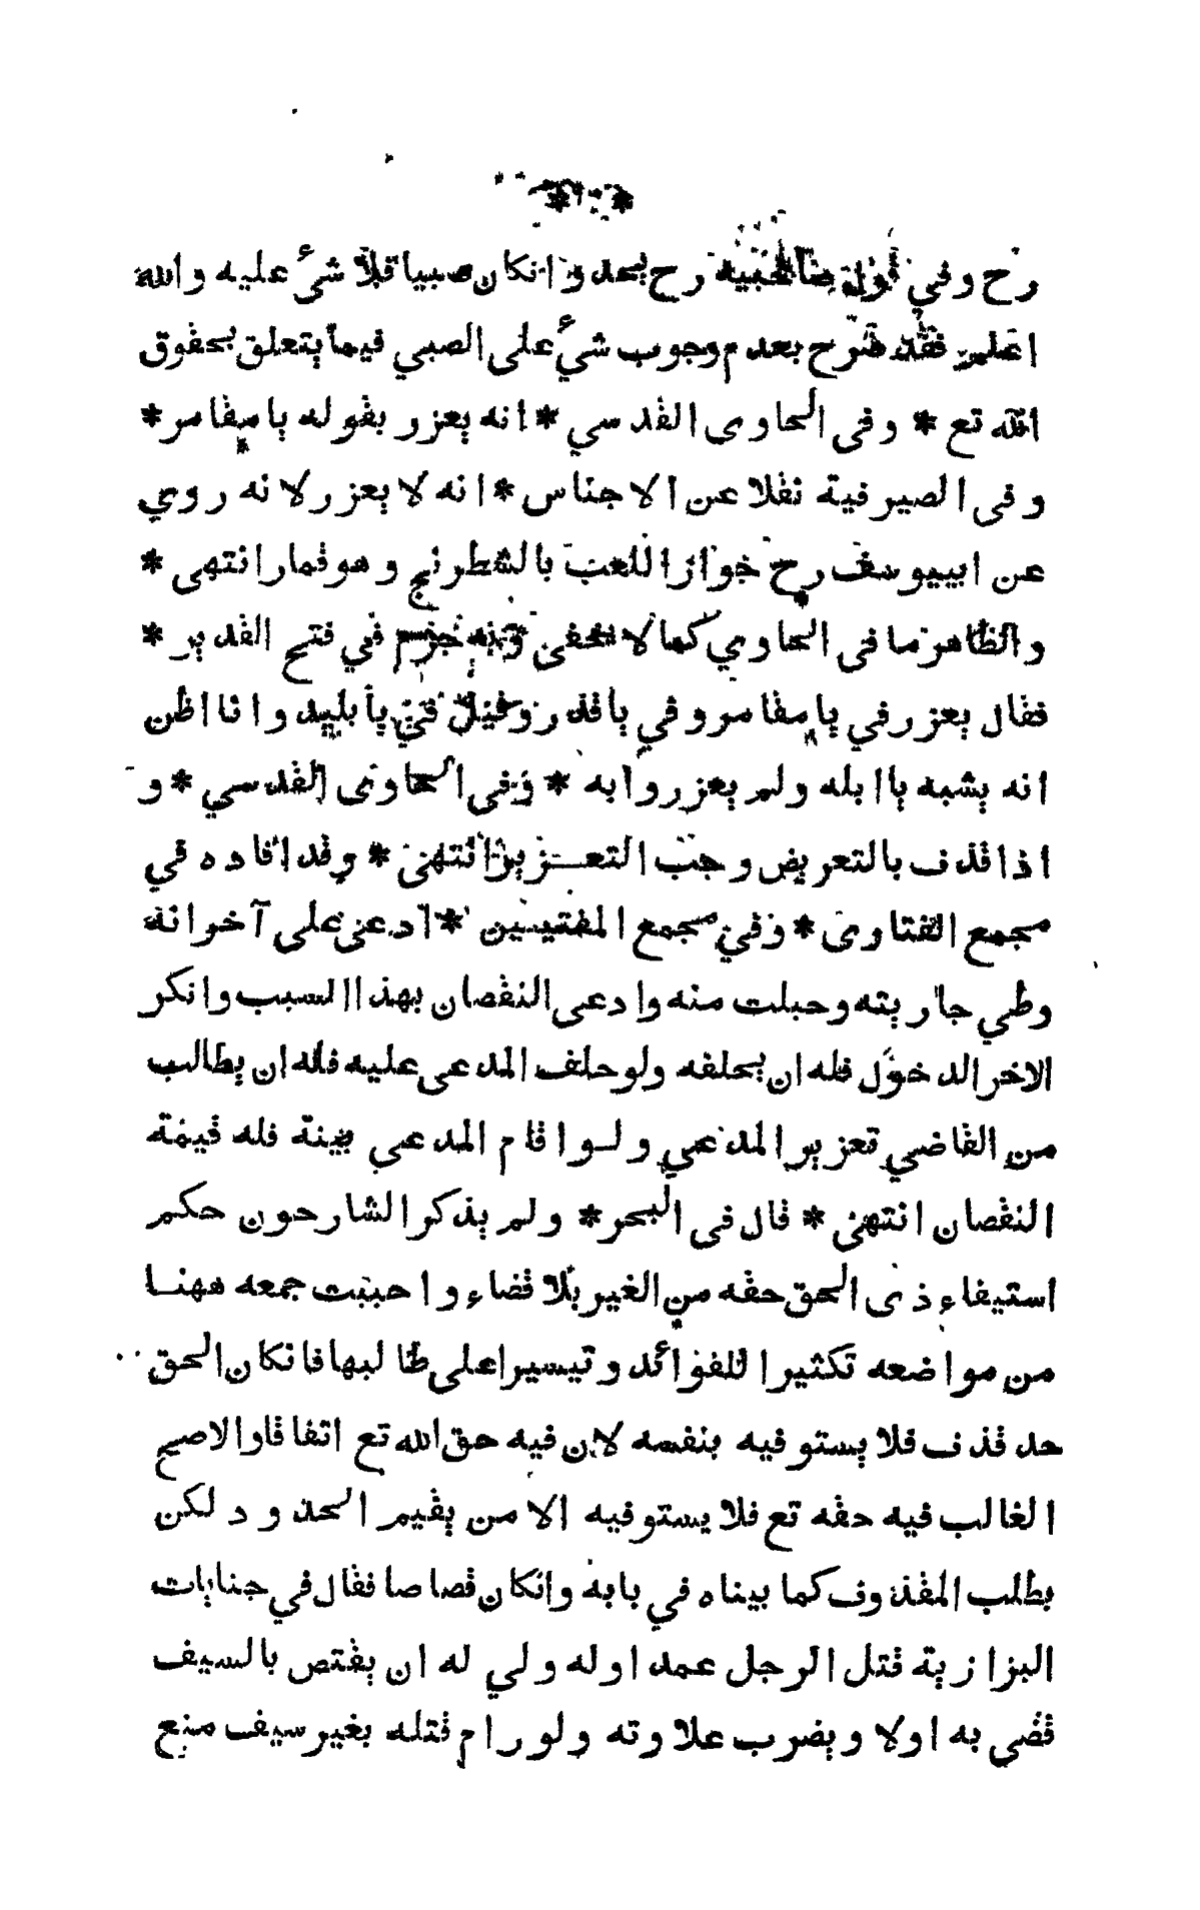 رح وفي قول صاحبيه رح يحد وانكان صبيا فلا شئ عليه والله
اعلم فقد صرح بعدم وجوب شئ على الصبي فيما يتعلق بحقوق
الله تع * وفى الحاوى القدسي * انه يعزر بقوله يا مقامر *
وفى الصيرفية نقلا عن الاجناس * انه لا يعزر لانه روي
عن ابييوسف رح جواز اللعب بالشطرنج وهو قمار انتهى *
والظاهر ما فى الحاوي كما لا يخفى وبه جزم في فتح القدير *
فقال يعزر في يا مقامر وفي يا قذر وقيل في يا بليد وانا اظن
انه يشبه يا ابله ولم يعزروا به * وفى الحاوى القدسي * و
اذا قذف بالتعريض وجب التعـــزير انتهى * وقد افاده في
مجمع الفتاوى * وفي مجمع المفتيين * ادعى على آخر انه
وطي جاريته وحبلت منه وادعى النقصان بهذا السبب وانكر
الاخر الدخول فله ان يحلفه ولو حلف المدعى عليه فله ان يطالب
من القاضي تعزير المدعي ولـو اقام المدعي بينة فله قيمة
النقصان انتهى * قال فى البحر * ولم يذكر الشارحون حكم
استيفاء ذى الحق حقه من الغير بلا قضاء واحببت جمعه ههنـا
من مواضعه تكثيرا للفوائد وتيسيرا على طالبها فانكان الحق
حد قذف فلا يستوفيه بنفسه لان فيه حق الله تع اتفاقا والاصح
الغالب فيه حقه تع فلا يستوفيه الا من يقيم الحدود لكن
يطلب المقذوف كما بيناه في بابه وانكان قصاصا فقال في جنايات
البزازية قتل الرجل عمدا وله ولي له ان يقتص بالسيف
قضي به اولا ويضرب علاوته ولو رام قتله بغير سيف منع